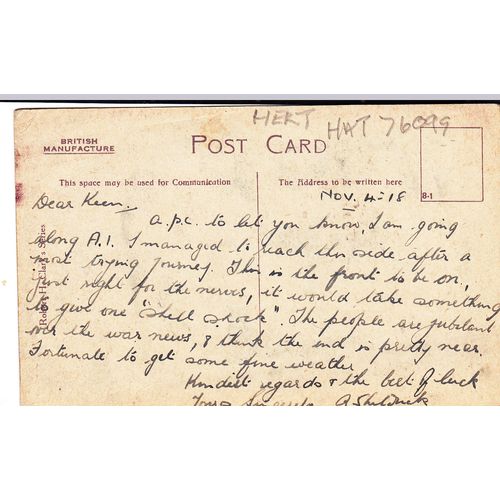 HERT HAT 76099
BRITISH
MANUFACTURE
POST CARD
This space may be used for Communication
The Address to be written here
8-1
Nov. 4-18
Dear Keen,
a.p.c. to let you know, I am going
along A.1. I managed to reach this side after a
most trying journey. This is the front to be on,
just right for the nerves, it would take something
to give one "shell shock". The people are jubilant
over the war news, & think the end is pretty near.
Fortunate to get some fine weather
Kindest regards & the best of luck
Yours Sincerely
Series